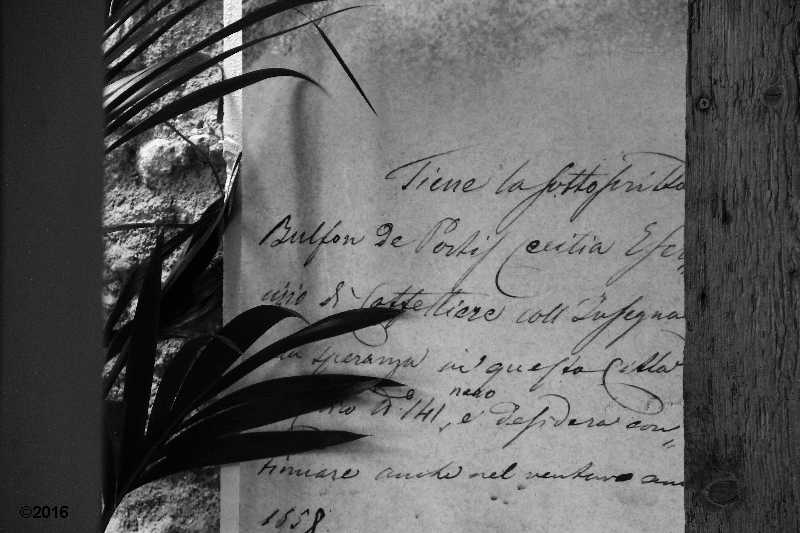 Tiene la sottoscritta
Bulfon de Portis Cecilia Eser
cizio di Caffettiere coll'Insegna
speranza in questa Città
N.° 141 nero, e desidera con=
tinuare anche nel venturo an
1858.
©2016